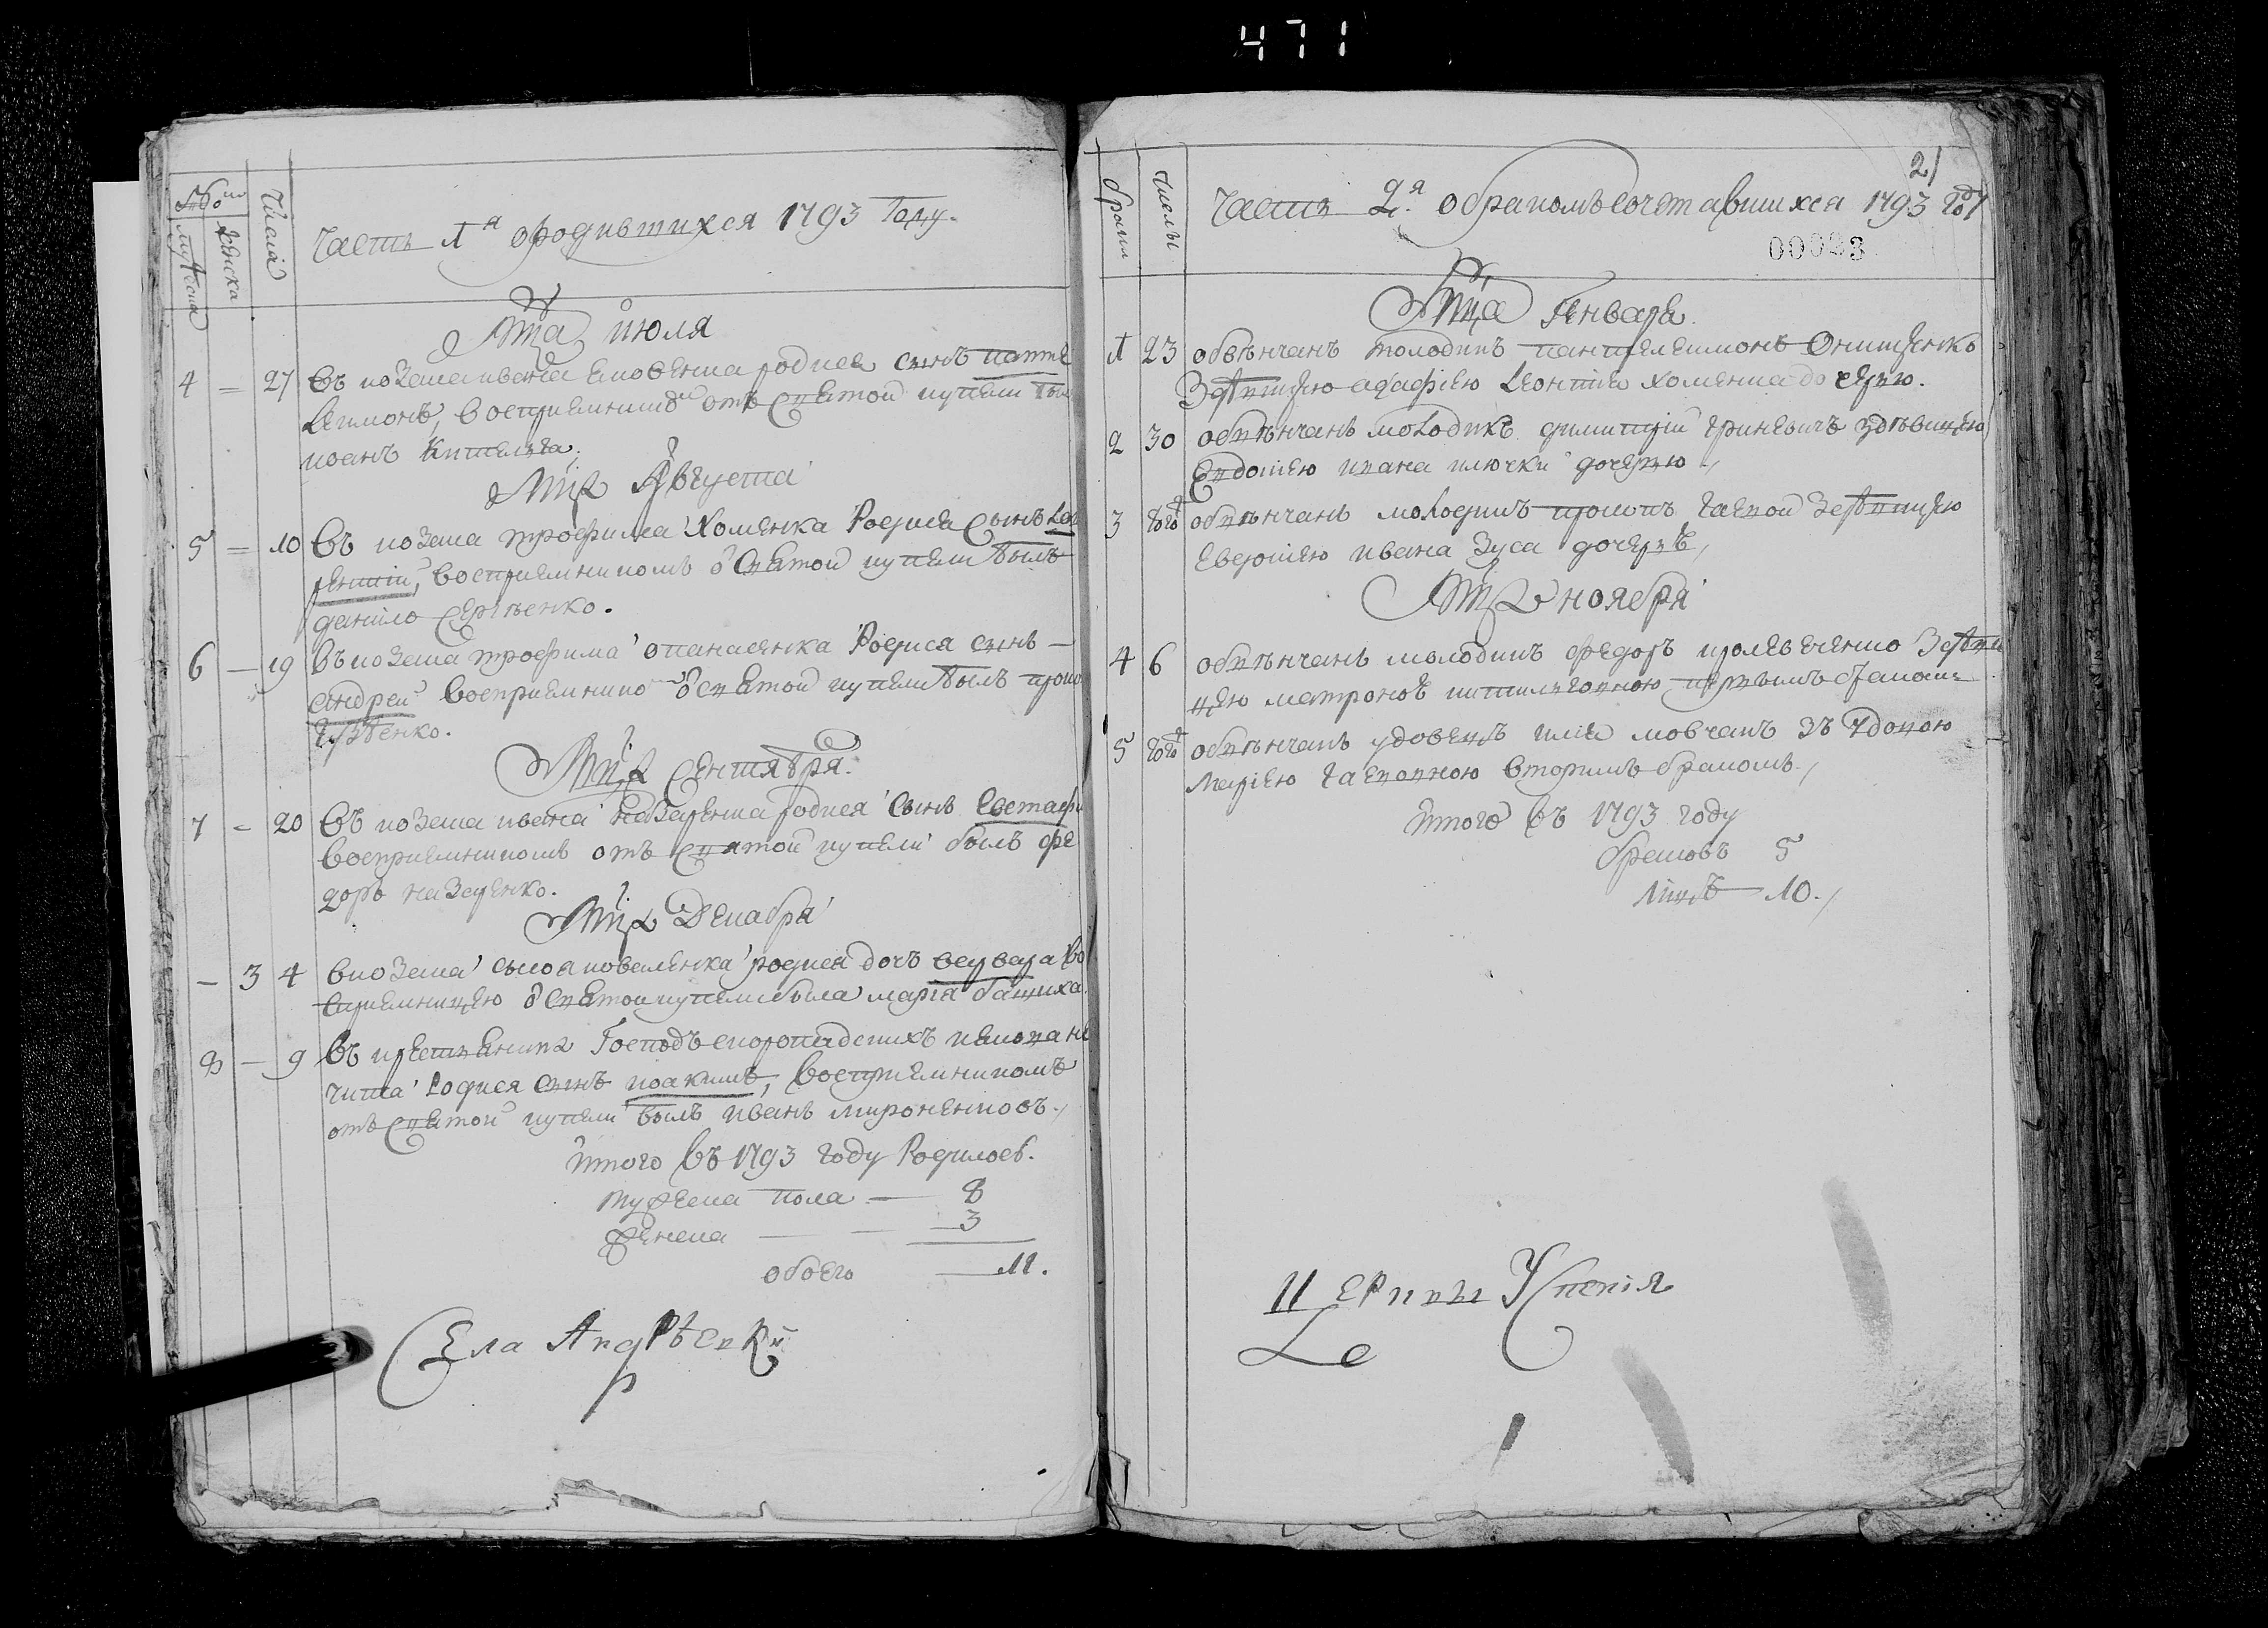 471
Число
мужеска
женска
Числа
Часть 1я о родившихся 1793 году.
Мца июля
4 = 27 въ козака ивана родися сынъ панте
леимонъ, восприемникъ отъ святой купели былъ
иоанъ
Мца Августа
5 = 10 въ козака трофима Хоменка Родися сынъ Лав
рентій, восприемникомъ ѿ святой купели былъ
данило Сергѣенко.
6 — 19 въ козака трофима опанасенка Родися сынъ —
андрей восприемнико ѿ святой купели былъ
Мца сентября.
7 = 20 въ козака ивана назаренка родися сынъ Евстафи
восприемникомъ отъ святой купели былъ фе
доръ назаренко.
Мца Декабря
— 3 4 в козака коваленка родися дочь варвара во
сприемницею ѿ святой купели была марія бацыха.
8 — 9 въ крестянина Господъ скоропадскихъ
Родися сынъ иоакимъ, восприемникомъ
отъ святой купели былъ иванъ мироненковъ.
Итого въ 1793 году Родилось.
мужеска пола — 8
женска — 3
обоего — 11.
Села Андрѣевки
21
брака
числы
Часть 2я о бракомъ сочетавшихся 1793 году
00023
Мца Генваря
1 23 обвѣнчанъ молодикъ пантелеимонъ Онищенкъ
З дѣвицею агафіею Леонтія хоменка дочерю.
2 30 обвѣнчанъ молодикъ димитрій гриневичъ здѣвицею
Евдокіею ивана ключки дочерю
3 обвѣнчанъ молодикъ З дѣвицею
Евдокіею ивана Зуса дочерѣ,
Мца ноября
4 6 обвѣнчанъ молодикъ федоръ З дѣви
цею матроною первымъ бракомъ
5 обвѣнчанъ удовецъ илія мовчанъ зъ удовою
маріею вторимъ бракомъ.
Итого въ 1793 году
браковъ 5
лицъ — 10.
Церкви Успенія